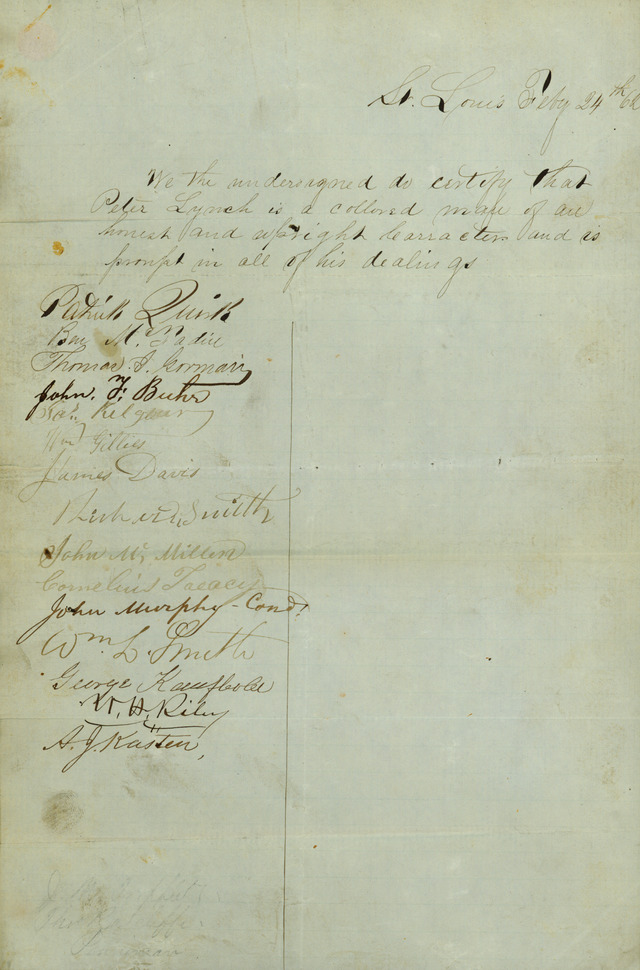 St. Louis Feby 24th 6
We the undersigned do certify that
Peter Lynch is a collored man of an
honest and upright carracter and is
prompt in all of his dealings
Patrick Quirk
Ben Mc
Thomas J. Gorman
John. F. Buhr
Wm Gillies
James Davis
Smith
John Mc Millen
Cornelius Treacy
John Murphy - Cond.
Wm L. Smith
George Kaufhold
W. H. Riley
A. J. Kasten,